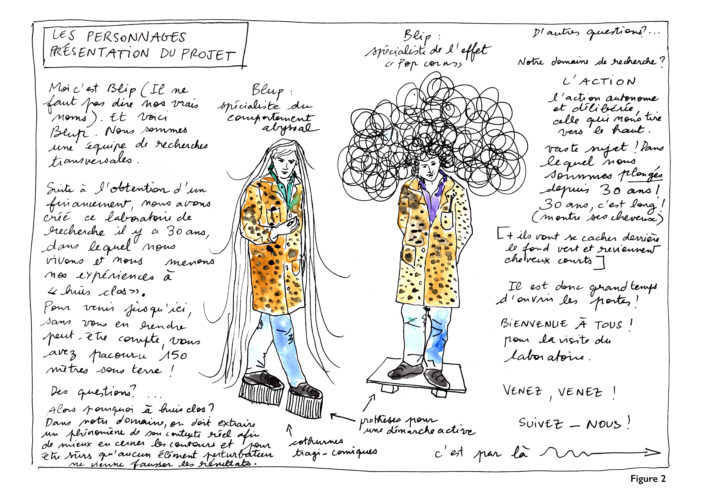 LES PERSONNAGES
PRÉSENTATION DU PROJET
Moi c'est Blip (Il ne
faut pas dire nos vrais
noms). Et voici
Blup. Nous sommes
une équipe de recherches
transversales.
Suite à l'obtention d'un
financement, nous avons
créé ce laboratoire de
recherche il y a 30 ans,
dans lequel nous
vivons et nous menons
nos expériences à
« huis clos ».
Pour venir jusqu'ici,
sans vous en rendre
peut-être compte, vous
avez parcouru 150
mètres sous terre !
Des questions ?....
Alors pourquoi à huis clos ?
Dans notre domaine, on doit extraire
un phénomène de son contexte réel afin
de mieux en cerner les contours et pour
être sûrs qu'aucun élément perturbateur
ne vienne fausser les résultats.
Blup :
spécialiste du
comportement
abyssal
Blip :
spécialiste de l'effet
« Pop corn »
cothurnes
tragi-comiques
prothèses pour
une démarche active
D'autres questions ?...
Notre domaine de recherche ?
L'ACTION
l'action autonome
et délibérée,
celle qui nous tire
vers le haut.
vaste sujet ! Dans
lequel nous
sommes plongés
depuis 30 ans !
30 ans, c'est long !
(montre ses cheveux)
[+ ils vont se cacher derrière
le fond vert et reviennent
cheveux courts]
Il est donc grand temps
d'ouvrir les portes !
BIENVENUE À TOUS !
pour la visite du
laboratoire.
VENEZ, VENEZ !
SUIVEZ-NOUS !
c'est par là
Figure 2